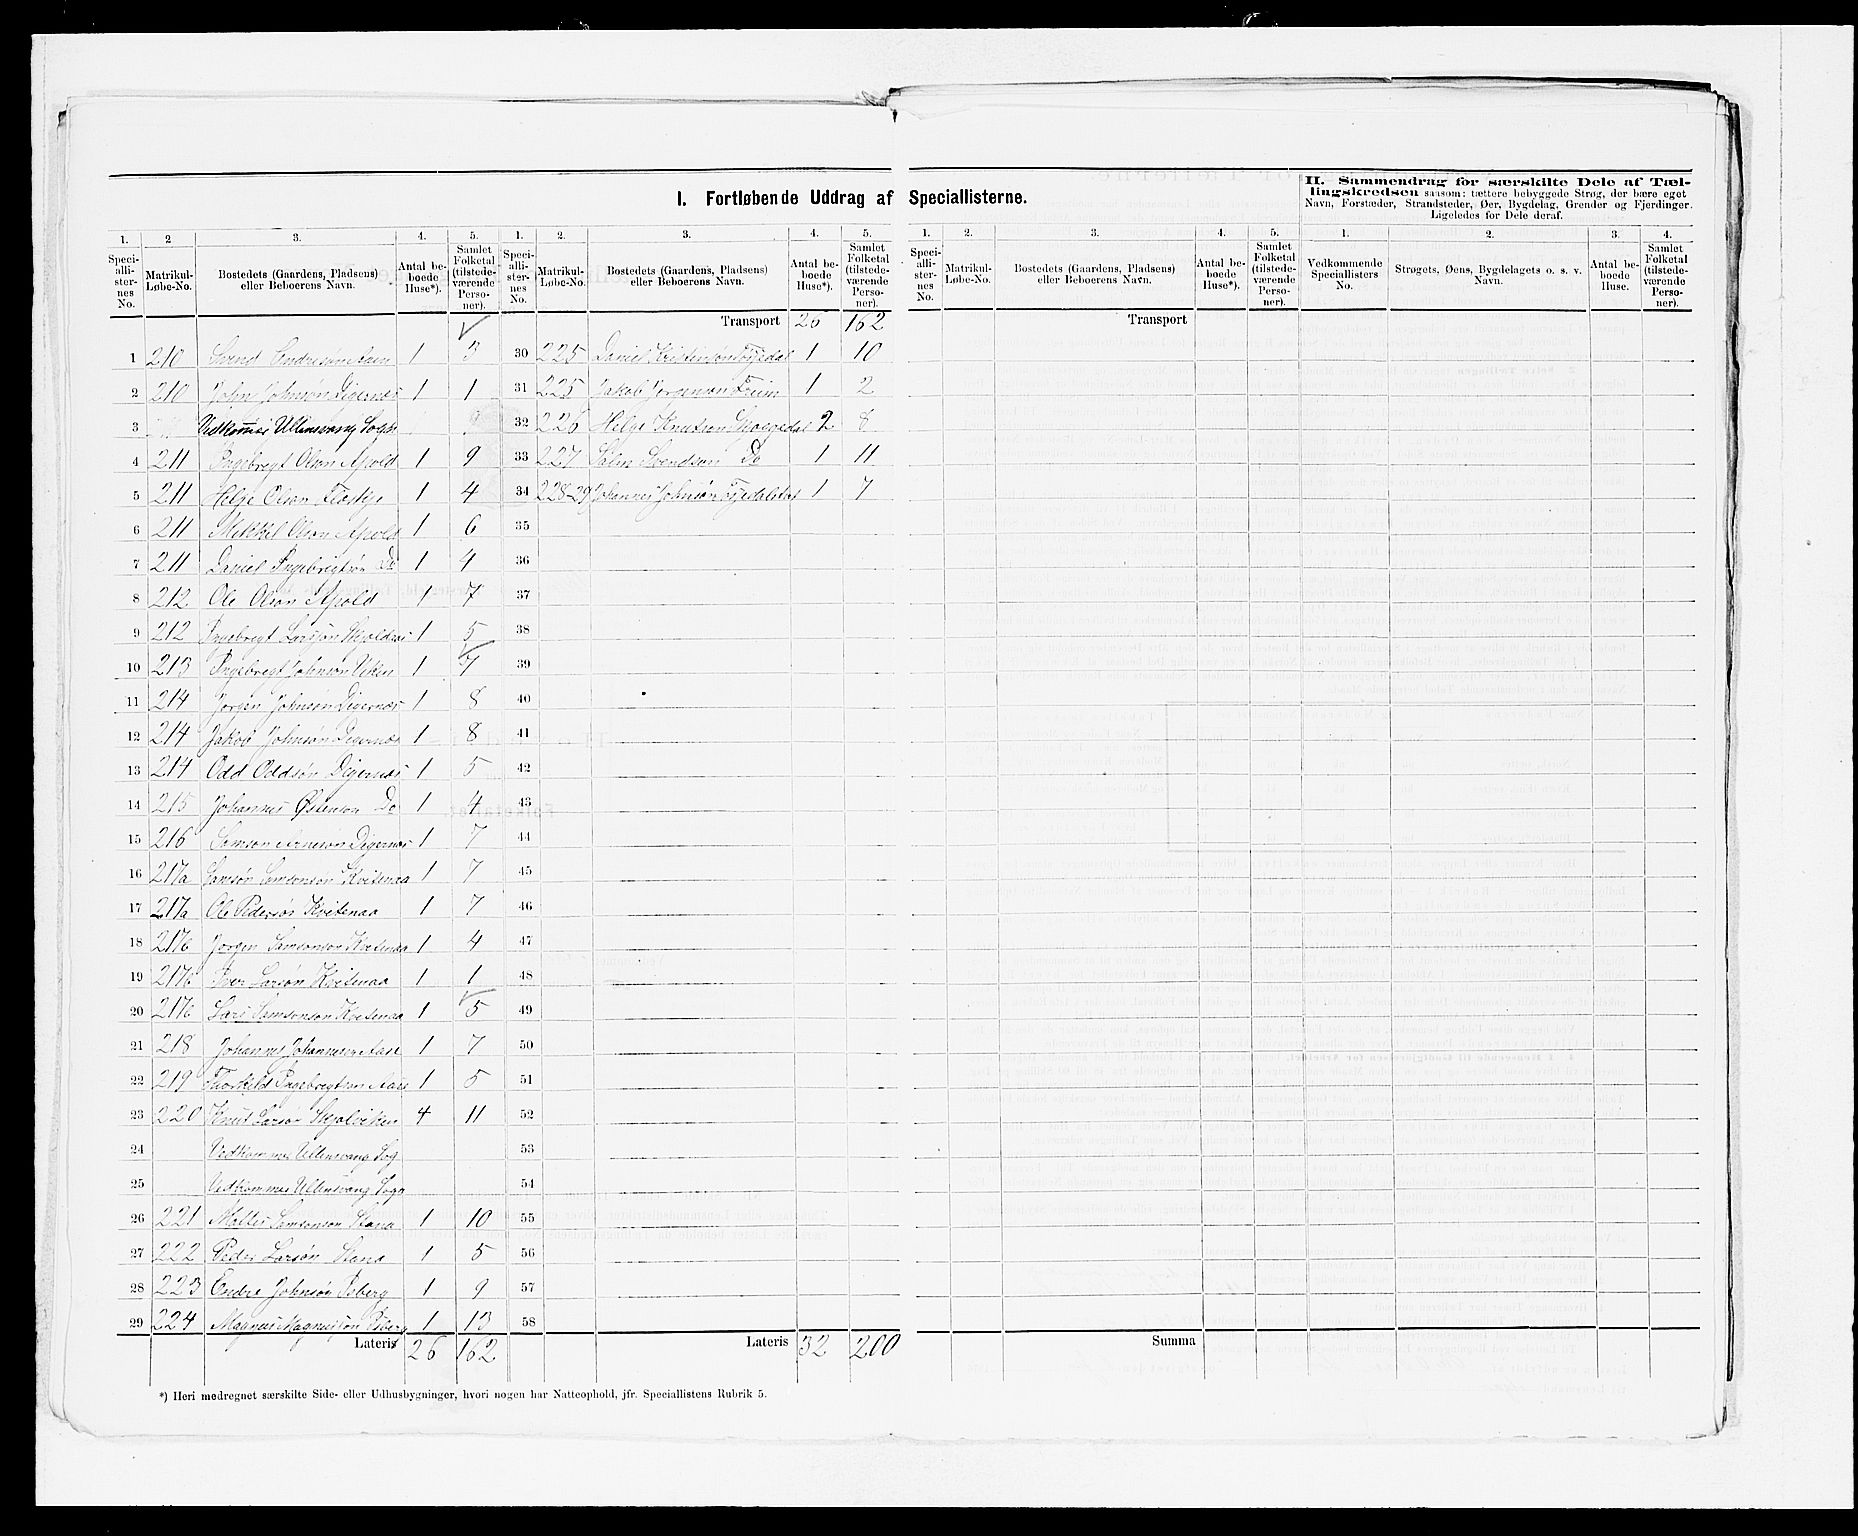 I. Fortløbende Uddrag af Speciallisterne.
II. Sammendrag for særskilte Dele af Tællingskredsen saasom: tættere bebyggede Strøg, der bære eget Navn, Forstæder, Strandsteder, Øer, Bygdelag, Grender og Fjerdinger. Ligeledes for Dele deraf.
1. 2 3. 4. 5. 1. 2. 3. 4. 5. 1. 2. 3. 4. 5. 1. 2. 3. 4.
Speciallisternes No. Matrikul-Løbe-No. Bostedets (Gaardens, Pladsens) eller Beboerens Navn. Antal beboede Huse*). Samlet Folketal (tilstedeværende Personer).
Speciallisternes No. Matrikul-Løbe-No. Bostedets (Gaardens, Pladsens) eller Beboerens Navn. Antal beboede Huse*). Samlet Folketal (tilstedeværende Personer).
Speciallisternes No. Matrikul-Løbe-No. Bostedets (Gaardens, Pladsens) eller Beboerens Navn. Antal beboede Huse*). Samlet Folketal (tilstedeværende Personer).
Vedkommende Speciallisters No. Strøgets, Øens, Bygdelagets o. s. v. Navn. Antal beboede Huse. Samlet Folketal (tilstedeværende Personer).
1 210 Svend 1 3
2 210 John Johnsøn Digernæs 1 1
3 Vedkommer Ullensvang Sogn
4 211 Ingebregt Olson Apold 1 9
5 211 Helge Olson 1 4
6 211 Mikkil Olson Apold 1 6
7 211 Daniel Ingebrigtsøn Do 1 4
8 212 Ole Olson Apold 1 7
9 212 Ingebregt Larssøn Skjoldnæs 1 5
10 213 Ingebregt Johnson Viken 1 7
11 214 Jørgen Johnson Digernæs 1 8
12 214 Jakob Johnsøn Digernæs 1 8
13 214 Odd Oddsøn Digernæs 1 5
14 215 Johannes Østenson Do 1 4
15 216 Samson Arneson Digernæs 1 7
16 217a Samsøn Samsonson Kvitenaa 1 7
17 217a Ole Pedersøn Kvitenaa 1 7
18 217b Jørgen Samsonson Kvitenaa 1 4
19 217b Iver Larsøn Kvitenaa 1 1
20 217b Lars Samsonson Kvitenaa 1 5
21 218 Johannes Johannesen Aase 1 7
22 219 Thorkild Ingebregtson Aase 1 5
23 220 Knut Larson Skjelviken 4 11
24 Vedkommer Ullensvang Sog
25 Vedkommer Ullensvang Sogn
26 221 Samsonson Stana 1 10
27 222 Peder Larsøn Stana 1 5
28 223 Endre Johnsøn Isberg 1 9
29 224 Magnus Magnusson Isberg 1 13
Lateris 26 162
Transport 26 162
30 225 Daniel 1 10
31 225 Jakob Jørgenson 1 2
32 226 Helge Knutson 2 8
33 227 Svendson Do 1 11
34 228-29 Johannes Johnsøn 1 7
35
36
37
38
39
40
41
42
43
44
45
46
47
48
49
50
51
52
53
54
55
56
57
58
Lateris 32 200
Transport
Summa
*) Heri medregnet særskilte Side- eller Udhusbygninger, hvori nogen har Natteophold, jfr. Speciallistens Rubrik 5.